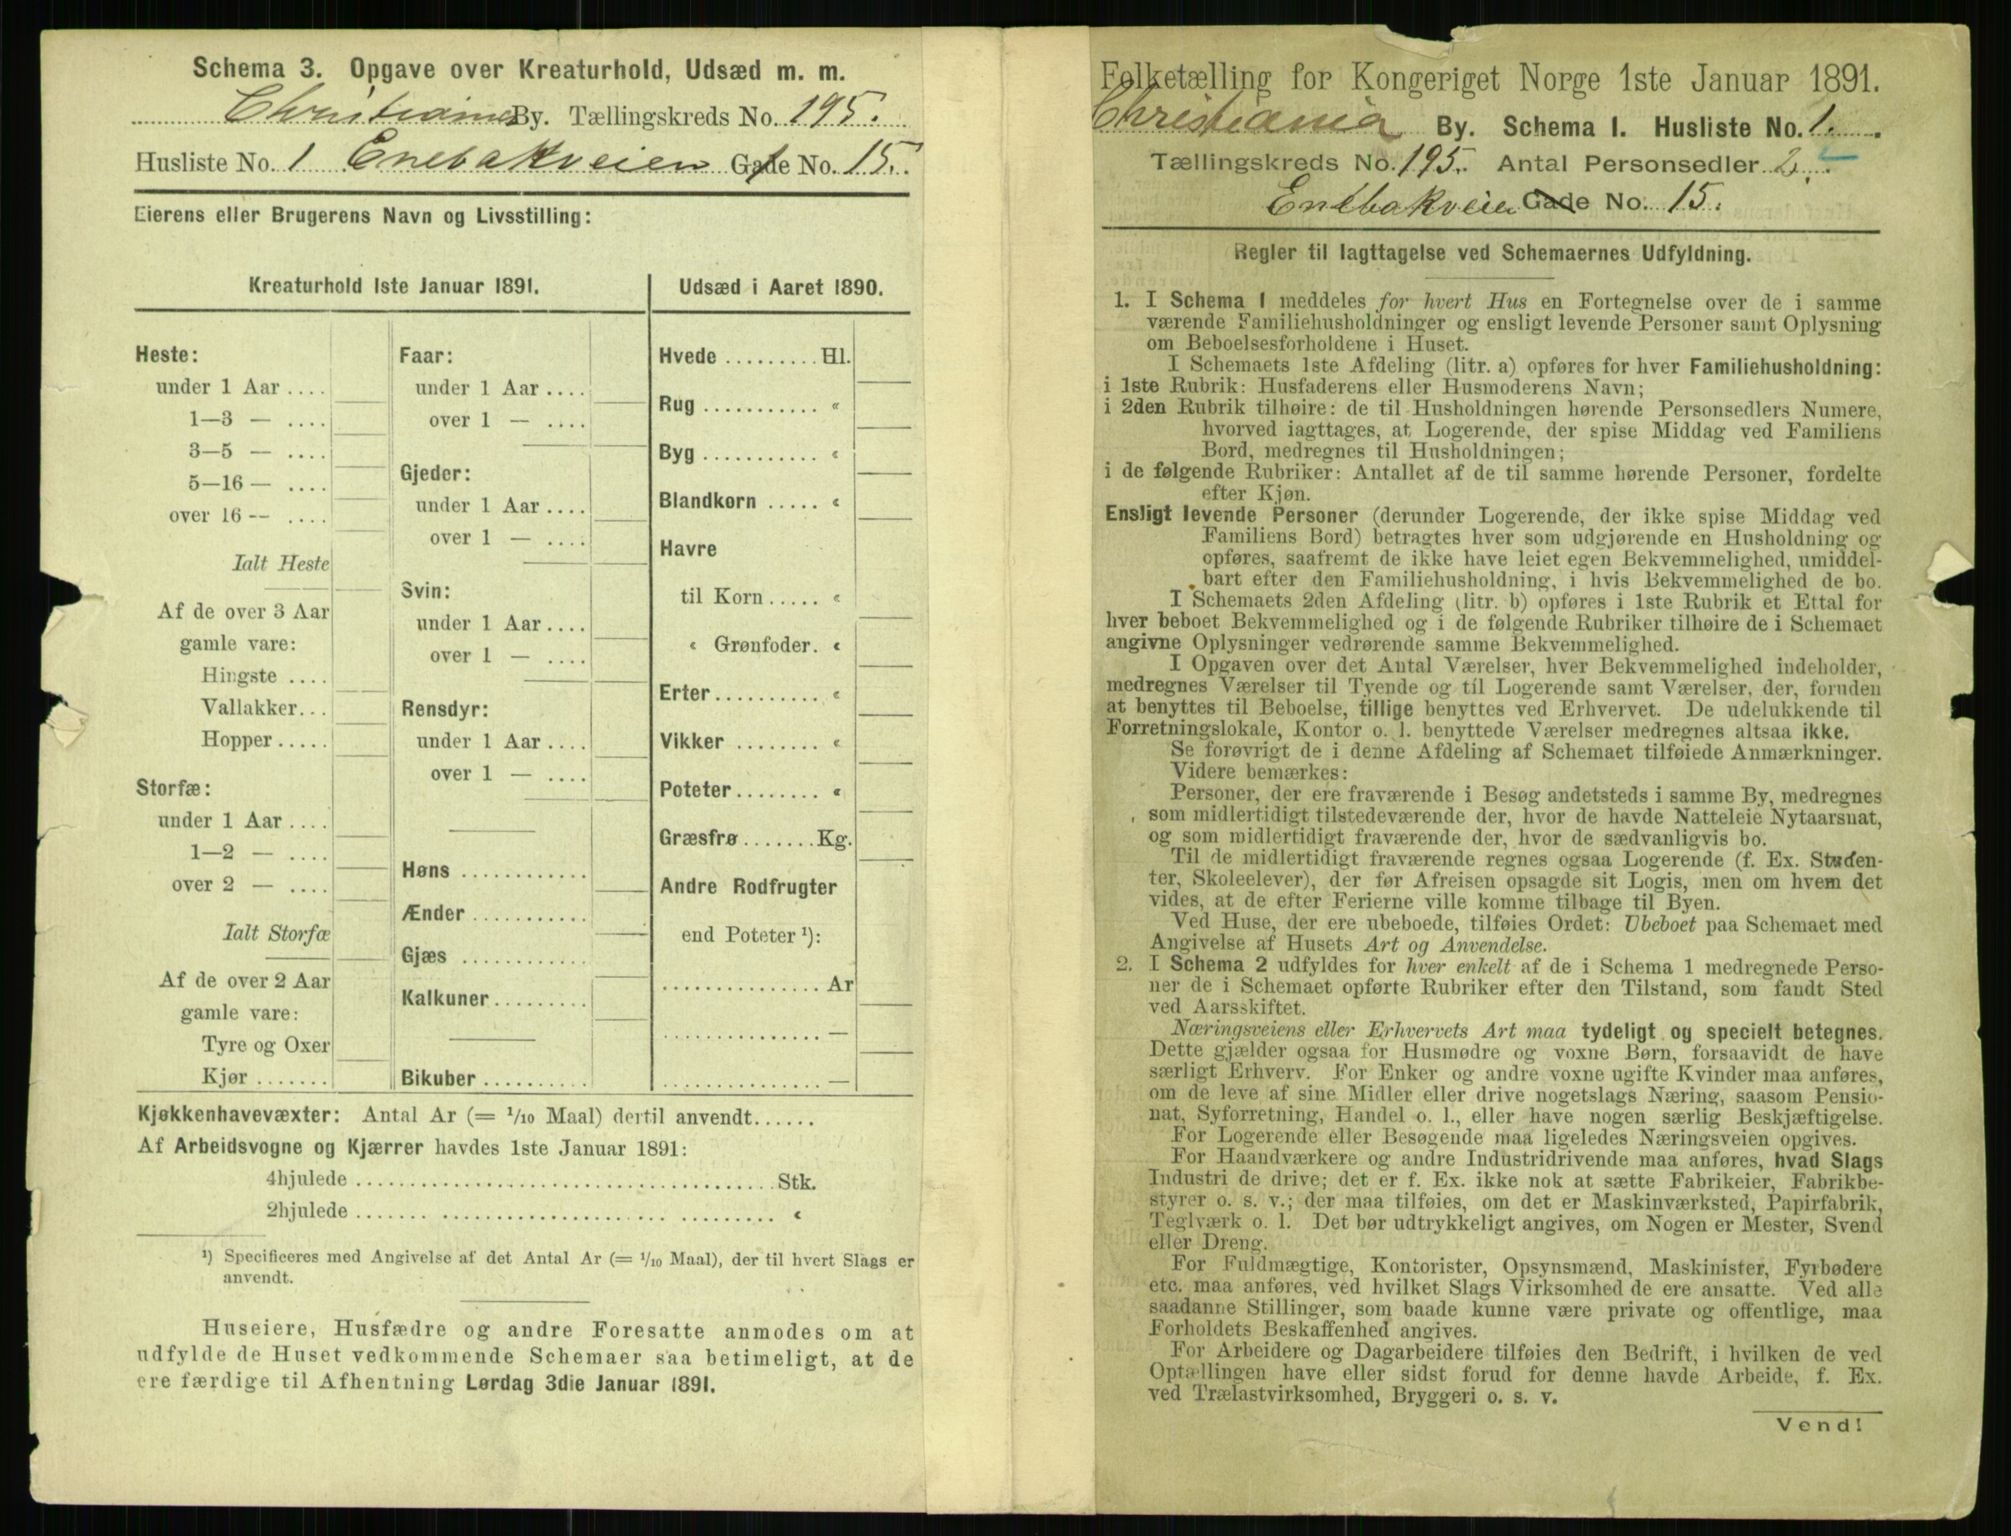 Schema 3. Opgave over Kreaturhold, Udsæd m. m.
Christiania By. Tællingskreds No. 195.
Husliste No. 1 Enebakveien Gade No. 15.
Eierens eller Brugerens Navn og Livsstilling:
Kreaturhold 1ste Januar 1891.
Heste:
under 1 Aar ....
1—3 — ....
3—5 — ....
5—16 — ....
over 16 -- ....
Ialt Heste
Af de over 3 Aar
gamle vare:
Hingste ....
Vallakker...
Hopper.....
Storfæ:
under 1 Aar ....
1—2 — ....
over 2 — ....
Ialt Storfæ
Af de over 2 Aar
gamle vare:
Tyre og Oxer
Kjør .......
Faar:
under 1 Aar ....
over 1 — ....
Gjeder:
under 1 Aar ....
over 1 — ....
Svin:
under 1 Aar ....
over 1 — ....
Rensdyr:
under 1 Aar ....
over 1 — ....
Høns ............
Ænder ...........
Gjæs ............
Kalkuner.........
Bikuber ..........
Udsæd i Aaret 1890.
Hvede ......... Hl.
Rug ........... «
Byg ........... «
Blandkorn ..... «
Havre
til Korn ..... «
« Grønfoder. «
Erter.......... «
Vikker ........ «
Poteter........ «
Græsfrø ....... Kg.
Andre Rodfrugter
end Poteter ¹):
............... Ar
............... —
............... —
Kjøkkenhavevæxter: Antal Ar (= 1/10 Maal) dertil anvendt......
Af Arbeidsvogne og Kjærrer havdes 1ste Januar 1891:
4hjulede ........................................ Stk.
2hjulede ........................................ «
¹) Specificeres med Angivelse af det Antal Ar (= 1/10 Maal), der til hvert Slags er
anvendt.
Huseiere, Husfædre og andre Foresatte anmodes om at
udfylde de Huset vedkommende Schemaer saa betimeligt, at de
ere færdige til Afhentning Lørdag 3die Januar 1891.
Folketælling for Kongeriget Norge 1ste Januar 1891.
Christiania By. Schema 1. Husliste No. 1.
Tællingskreds No. 195. Antal Personsedler 2.
Enebakveien Gade No. 15.
Regler til Iagttagelse ved Schemaernes Udfyldning.
1. I Schema 1 meddeles for hvert Hus en Fortegnelse over de i samme
værende Familiehusholdninger og ensligt levende Personer samt Oplysning
om Beboelsesforholdene i Huset.
I Schemaets 1ste Afdeling (litr. a) opføres for hver Familiehusholdning:
i 1ste Rubrik: Husfaderens eller Husmoderens Navn;
i 2den Rubrik tilhøire: de til Husholdningen hørende Personsedlers Numere,
hvorved iagttages, at Logerende, der spise Middag ved Familiens
Bord, medregnes til Husholdningen;
i de følgende Rubriker: Antallet af de til samme hørende Personer, fordelte
efter Kjøn.
Ensligt levende Personer (derunder Logerende, der ikke spise Middag ved
Familiens Bord) betragtes hver som udgjørende en Husholdning og
opføres, saafremt de ikke have leiet egen Bekvemmelighed, umiddel-
bart efter den Familiehusholdning, i hvis Bekvemmelighed de bo.
I Schemaets 2den Afdeling (litr. b) opføres i 1ste Rubrik et Ettal for
hver beboet Bekvemmelighed og i de følgende Rubriker tilhøire de i Schemaet
angivne Oplysninger vedrørende samme Bekvemmelighed.
I Opgaven over det Antal Værelser, hver Bekvemmelighed indeholder,
medregnes Værelser til Tyende og til Logerende samt Værelser, der, foruden
at benyttes til Beboelse, tillige benyttes ved Erhvervet. De udelukkende til
Forretningslokale, Kontor o. l. benyttede Værelser medregnes altsaa ikke.
Se forøvrigt de i denne Afdeling af Schemaet tilføiede Anmærkninger.
Videre bemærkes:
Personer, der ere fraværende i Besøg andetsteds i samme By, medregnes
som midlertidigt tilstedeværende der, hvor de havde Natteleie Nytaarsnat,
og som midlertidigt fraværende der, hvor de sædvanligvis bo.
Til de midlertidigt fraværende regnes ogsaa Logerende (f. Ex. Studen-
ter, Skoleelever), der før Afreisen opsagde sit Logis, men om hvem det
vides, at de efter Ferierne ville komme tilbage til Byen.
Ved Huse, der ere ubeboede, tilføies Ordet: Ubeboet paa Schemaet med
Angivelse af Husets Art og Anvendelse.
2. I Schema 2 udfyldes for hver enkelt af de i Schema 1 medregnede Perso-
ner de i Schemaet opførte Rubriker efter den Tilstand, som fandt Sted
ved Aarsskiftet.
Næringsveiens eller Erhvervets Art maa tydeligt og specielt betegnes.
Dette gjælder ogsaa for Husmødre og voxne Børn, forsaavidt de have
særligt Erhverv. For Enker og andre voxne ugifte Kvinder maa anføres,
om de leve af sine Midler eller drive nogetslags Næring, saasom Pensio-
nat, Syforretning, Handel o. l., eller have nogen særlig Beskjæftigelse.
For Logerende eller Besøgende maa ligeledes Næringsveien opgives.
For Haandværkere og andre Industridrivende maa anføres, hvad Slags
Industri de drive; det er f. Ex. ikke nok at sætte Fabrikeier, Fabrikbe-
styrer o. s. v.; der maa tilføies, om det er Maskinværksted, Papirfabrik,
Teglværk o. l. Det bør udtrykkeligt angives, om Nogen er Mester, Svend
eller Dreng.
For Fuldmægtige, Kontorister, Opsynsmænd, Maskinister, Fyrbødere
etc. maa anføres, ved hvilket Slags Virksomhed de ere ansatte. Ved alle
saadanne Stillinger, som baade kunne være private og offentlige, maa
Forholdets Beskaffenhed angives.
For Arbeidere og Dagarbeidere tilføies den Bedrift, i hvilken de ved
Optællingen have eller sidst forud for denne havde Arbeide, f. Ex.
ved Trælastvirksomhed, Bryggeri o. s. v.
Vend!